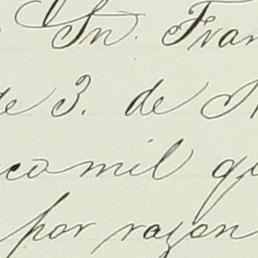 Sn. Fran
de 3. de
mil
por razon